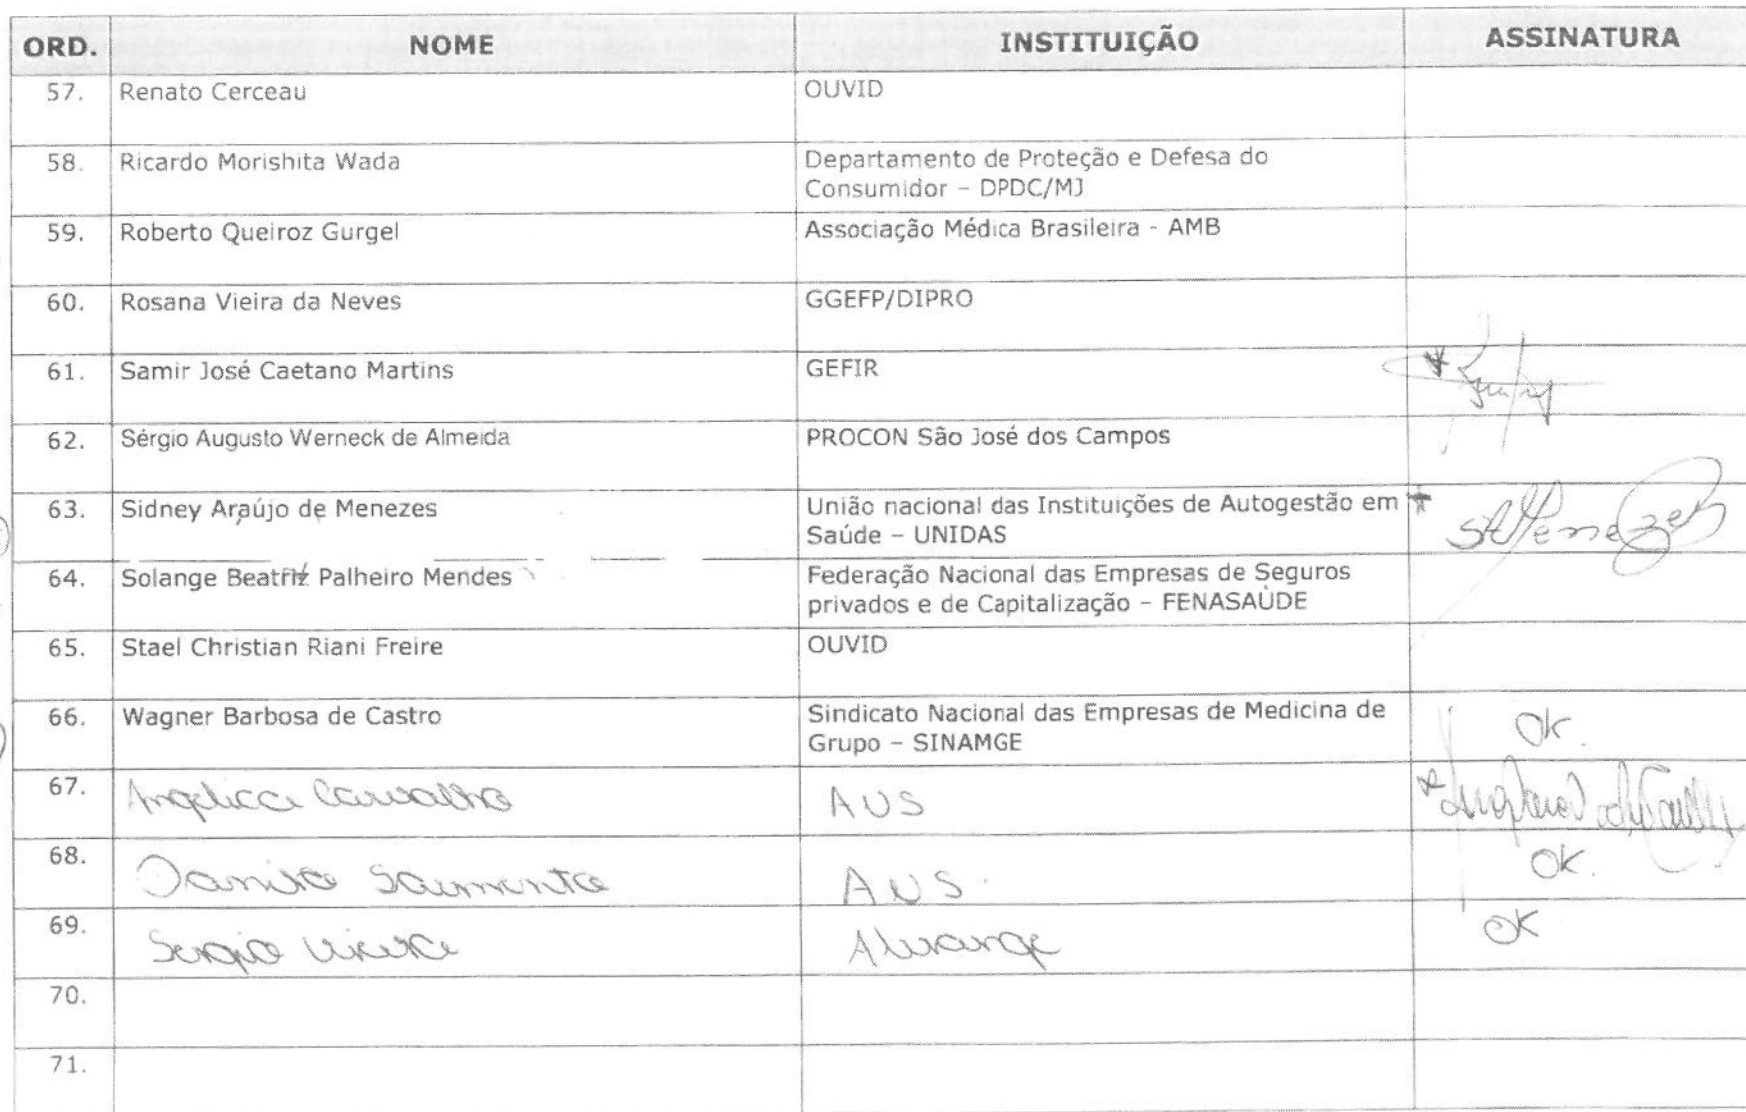 ORD. NOME INSTITUIÇÃO ASSINATURA
57. Renato Cerceau OUVID
58. Ricardo Morishita Wada Departamento de Proteção e Defesa do
Consumidor – DPDC/MJ
59. Roberto Queiroz Gurgel Associação Médica Brasileira - AMB
60. Rosana Vieira da Neves GGEFP/DIPRO
61. Samir José Caetano Martins GEFIR
62. Sérgio Augusto Werneck de Almeida PROCON São José dos Campos
63. Sidney Araújo de Menezes União nacional das Instituições de Autogestão em
Saúde – UNIDAS
64. Solange Beatriz Palheiro Mendes Federação Nacional das Empresas de Seguros
privados e de Capitalização – FENASAÚDE
65. Stael Christian Riani Freire OUVID
66. Wagner Barbosa de Castro Sindicato Nacional das Empresas de Medicina de
Grupo – SINAMGE OK.
67. Angelica Carvalho
68. Sarmento OK.
69. Sergio Vieira OK
70.
71.